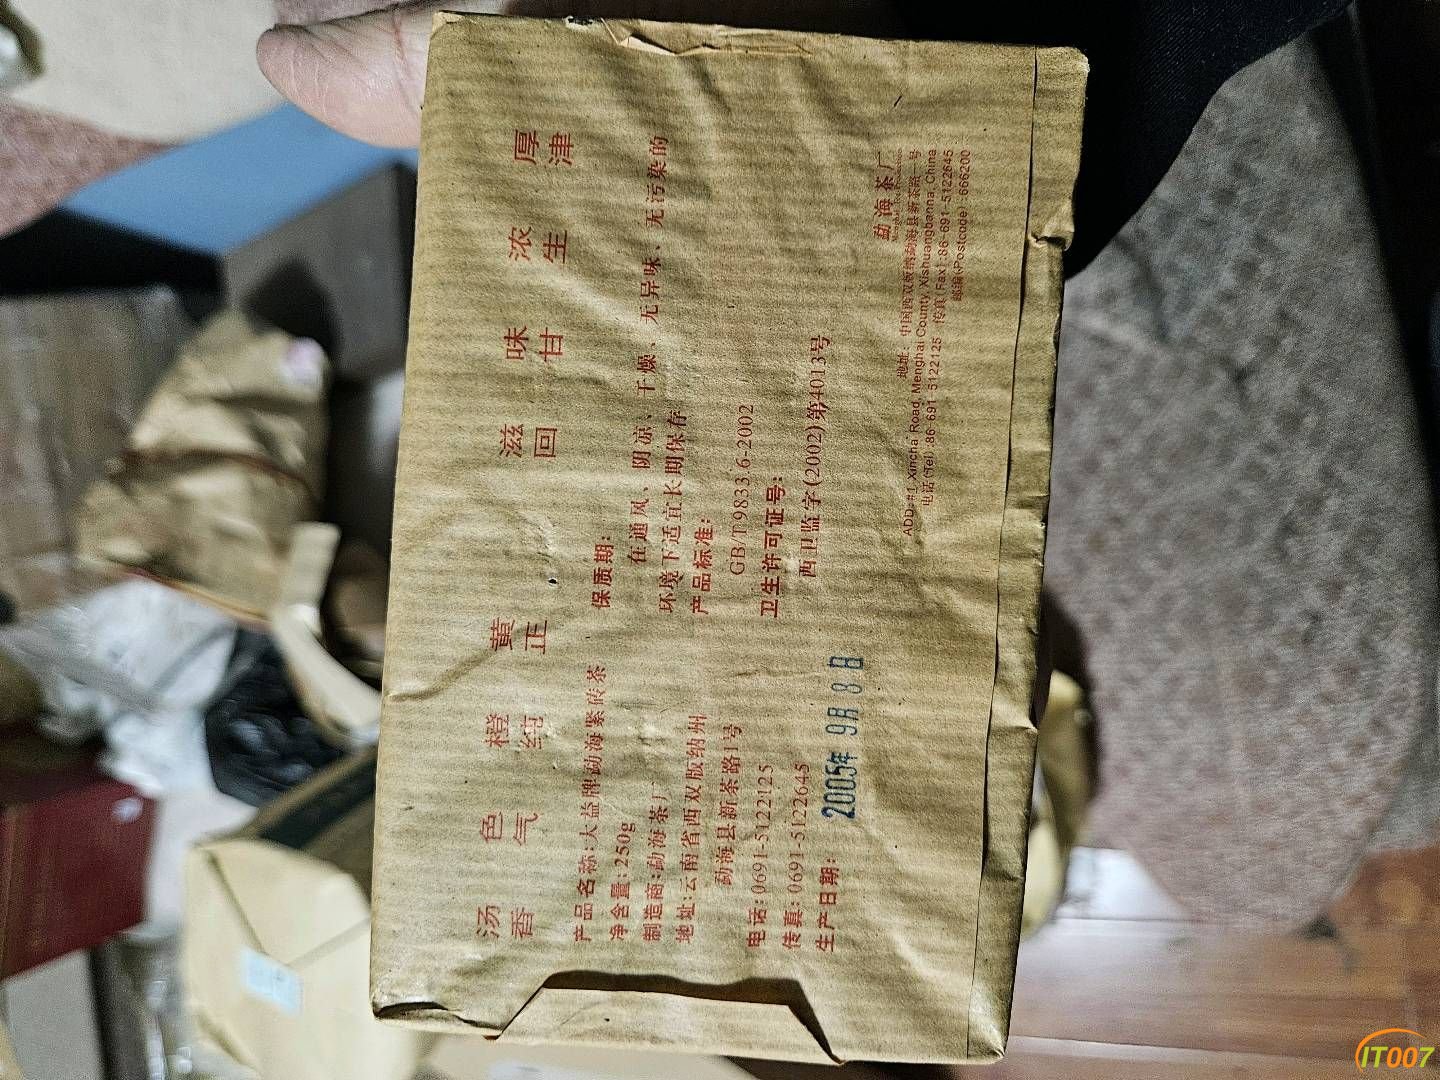 汤色橙黄 滋味浓厚
香气纯正 回甘生津
产品名称:大益牌勐海紫砖茶
净含量:250g
制造商:勐海茶厂
地址:云南省西双版纳州
勐海县新茶路1号
电话:0691-5122125
传真:0691-5122645
生产日期:
2005年 9月 8日
保质期:
在通风、阴凉、干燥、无异味、无污染的
环境下适宜长期保存
产品标准:
GB/T9833.6-2002
卫生许可证号:
西卫监字(2002)第4013号
勐海茶厂
地址:中国西双版纳勐海县新茶路一号
ADD:#1,Xincha Road, Menghai County,Xishuangbanna, China
电话(Tel):86-691-5122125 传真(Fax):86-691-5122645
邮编(Postcode):666200
IT007